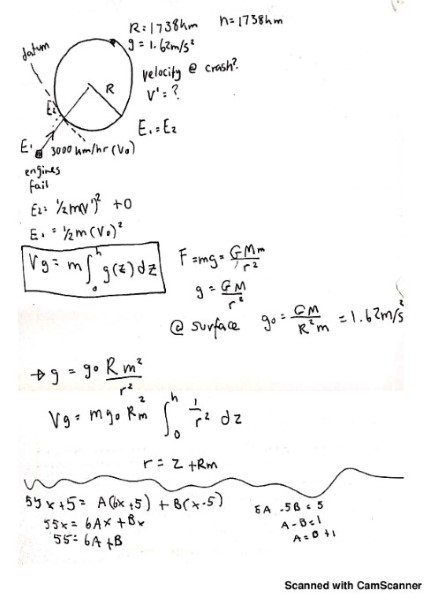 R = 1738km h = 1738km
g = 1.62m/s²
datum
velocity @ crash?
V' = ?
R
E₂
E₁ = E₂
E₁
3000 km/hr (V₀)
engines
fail
E₂ = 1/2 m(V')² + 0
E₁ = 1/2 m (V₀)²
Vg = m∫₀ʰ g(z) dz
F = mg = GMm/r²
g = GM/r²
@ surface g₀ = GM/R²m = 1.62m/s²
→ g = g₀ Rm²/r²
Vg = m g₀ Rm² ∫₀ʰ 1/r² dz
r = z + Rm
55x + 5 = A(6x + 5) + B(x - 5)
55x = 6Ax + Bx
55 = 6A + B
5A - 5B = 5
A - B = 1
A = B + 1
Scanned with CamScanner